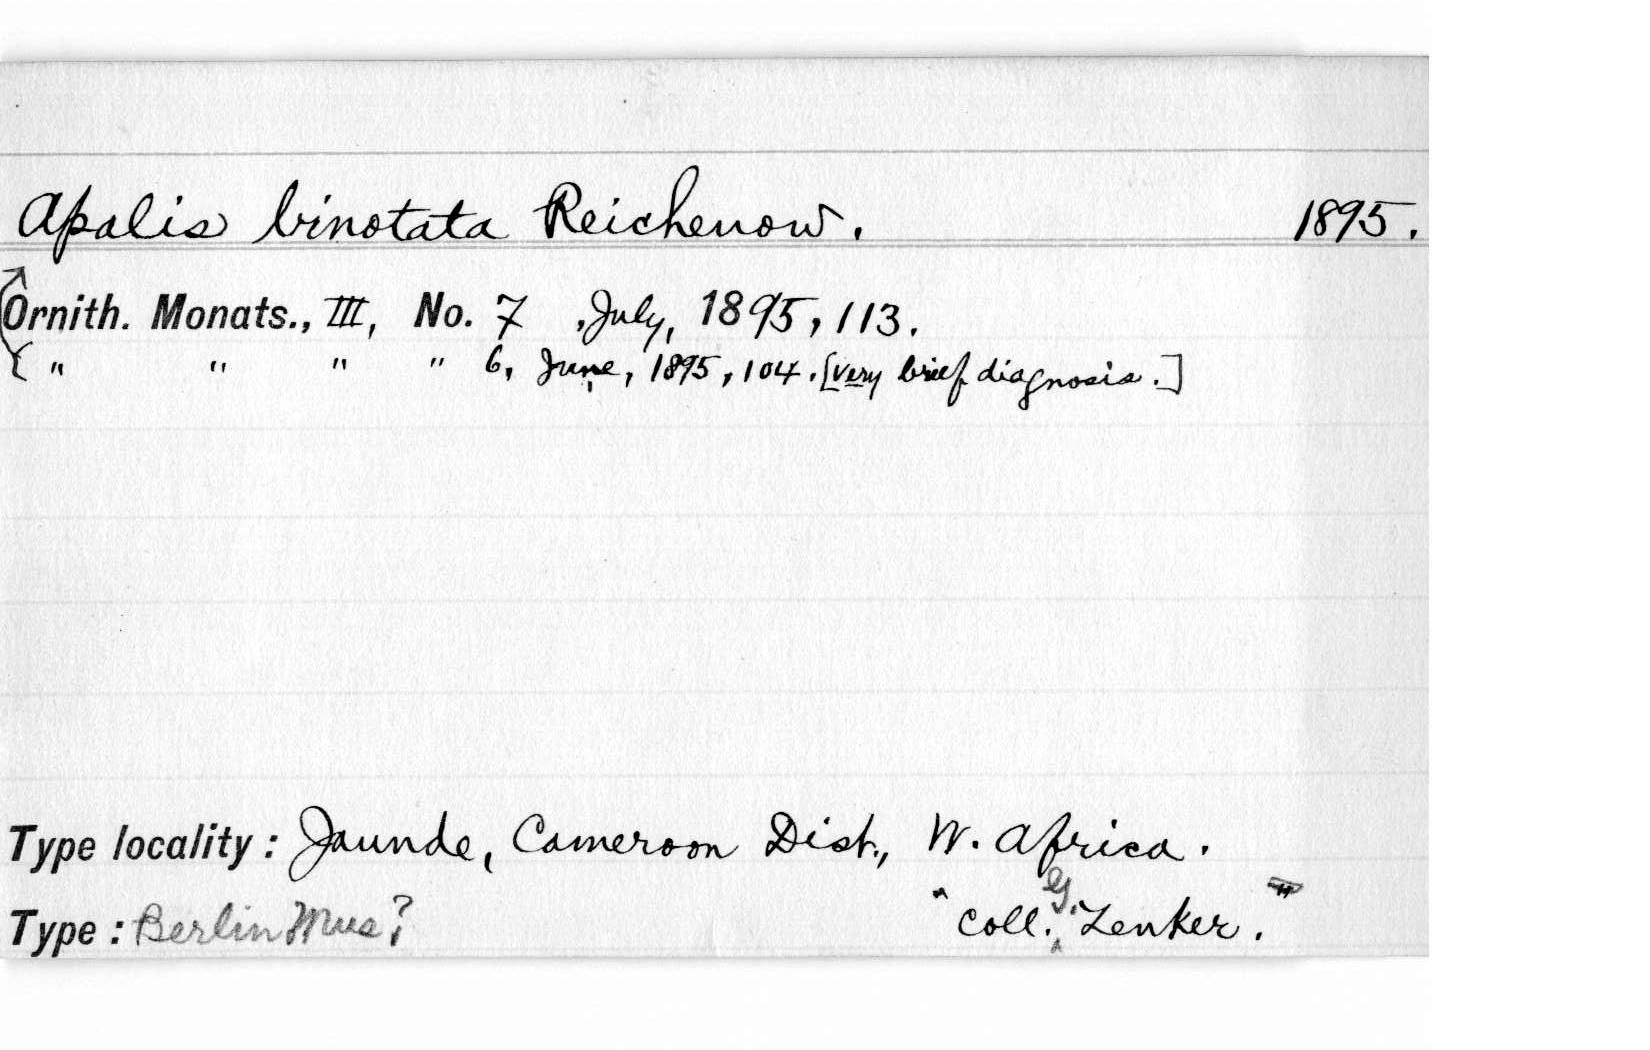 Apalis binotata Reichenow. 1895.
Ornith. Monats., III, No. 7, July, 1895, 113.
" " " " 6, June, 1895, 104. [very brief diagnosis.]
Type locality: Jaunde, Cameroon Dist., W. Africa.
Type: Berlin Mus? "Coll. G. Zenker."